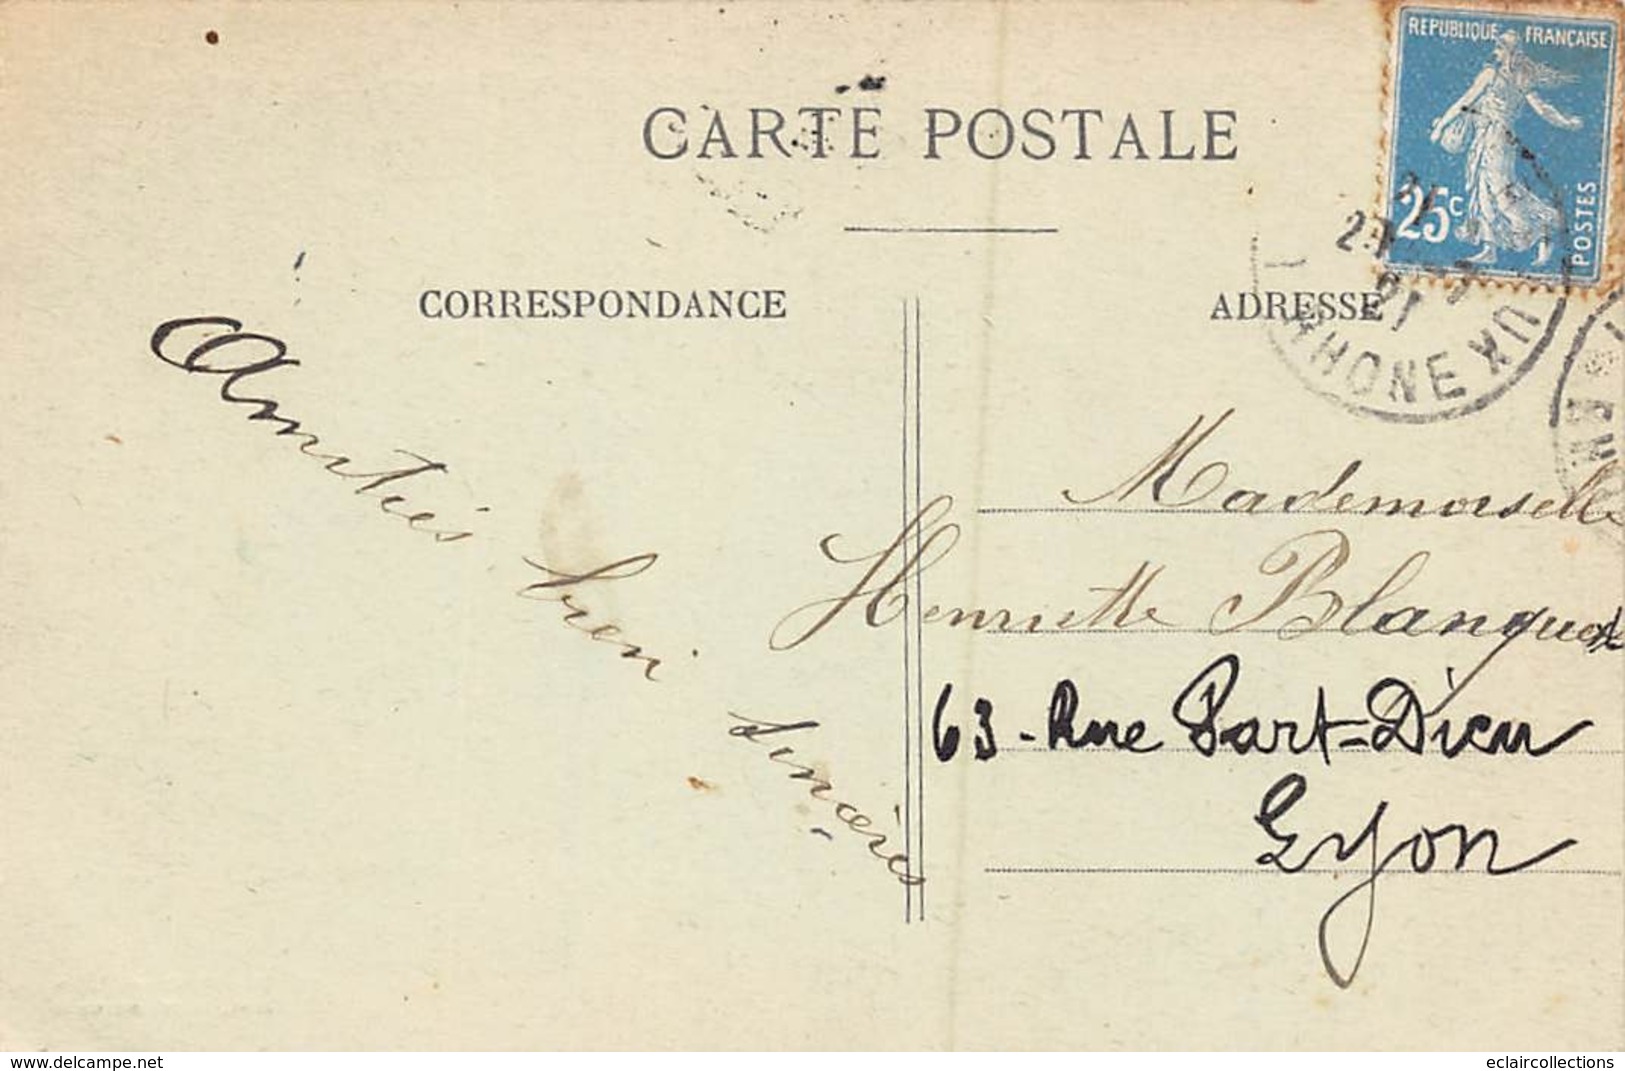 REPUBLIQUE FRANÇAISE
25c
POSTES
CARTE POSTALE
CORRESPONDANCE
ADRESSE
21
RHONE
Amitiés
bien
sincères
Mademoiselle
Henriette Blanquet
63 - Rue Part-Dieu
Lyon
www.delcampe.net
eclaircollections